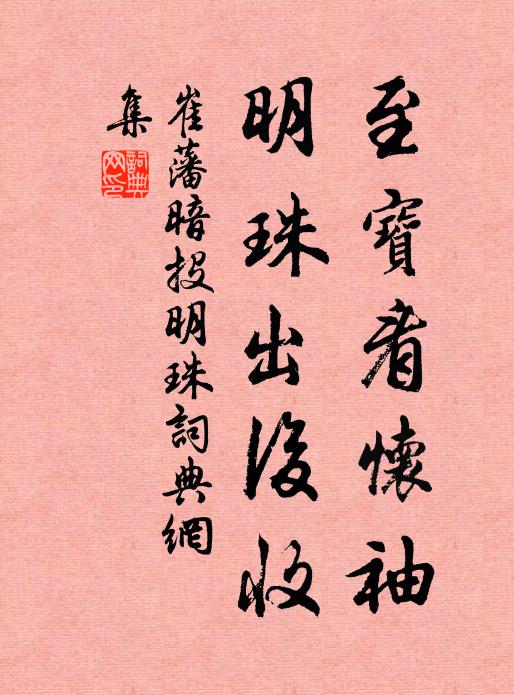 至寶看懷袖
明珠出後收
崔藩暗投明珠詞典網
集
詞典网印